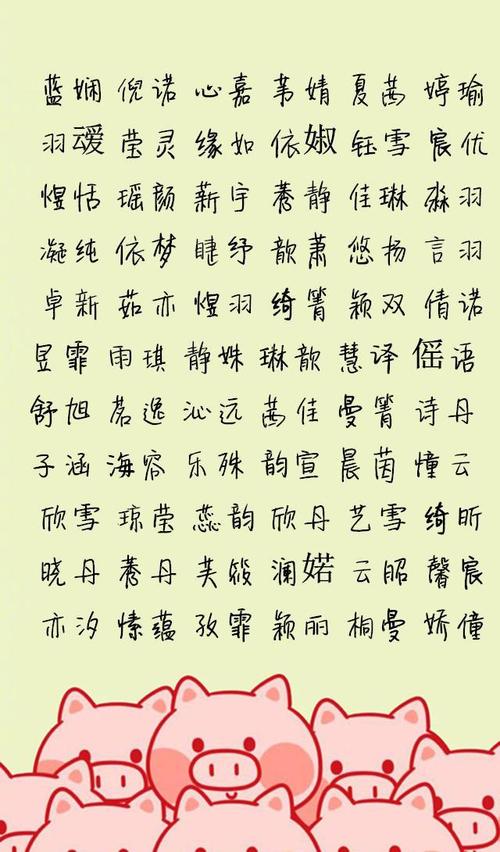 蓝娴 倪诺 心嘉 苇婧 夏茜 婷瑜
羽叆 莹灵 缘如 依婌 钰雪 宸优
煜恬 瑶颜 薪宇 静 佳琳 淼羽
凝纯 依梦 睫纾 歆萧 悠扬 言羽
卓新 茹亦 煜羽 绮箐 颖双 倩诺
昱霏 雨琪 静姝 琳歆 慧译 傜语
舒旭 茗逸 沁远 茜佳 曼箐 诗丹
子涵 海容 乐殊 韵宣 晨茵 憧云
欣雪 琼莹 蕊韵 欣丹 艺雪 绮昕
晓丹 丹 芙筱 澜婼 云昭 馨宸
亦汐 愫蕴 孜霏 颖丽 桐曼 娇僮